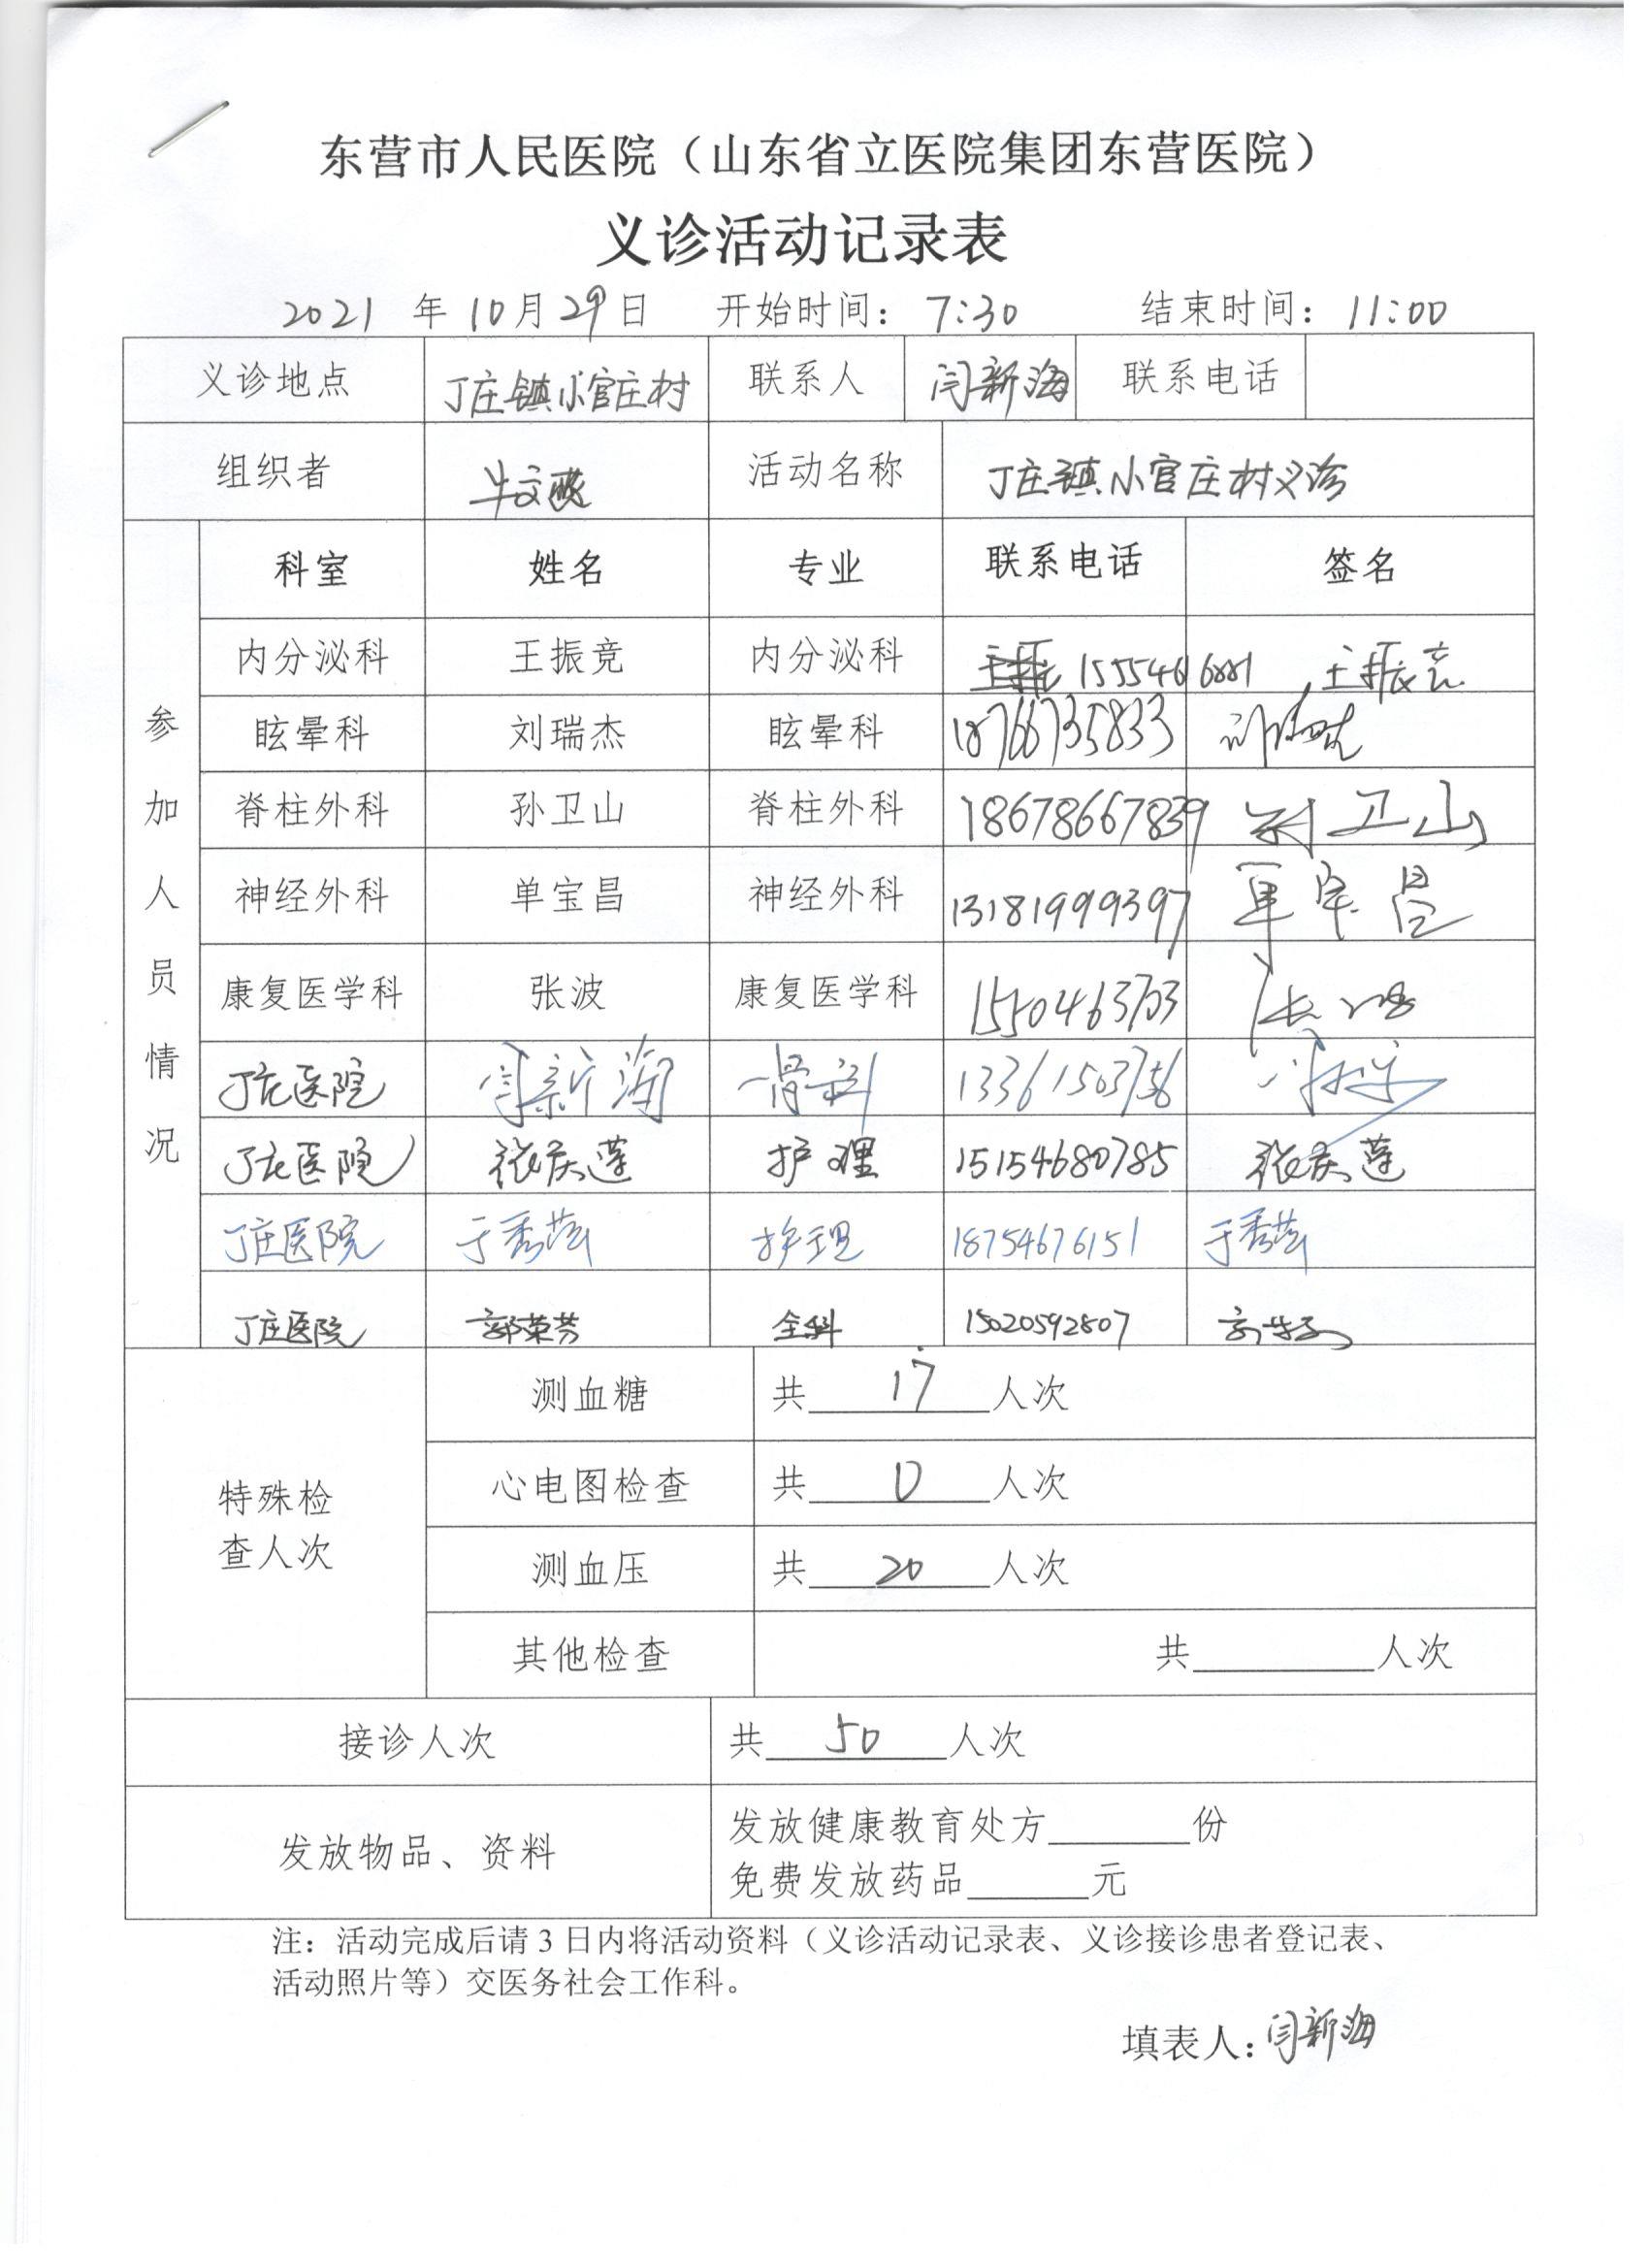 东营市人民医院（山东省立医院集团东营医院）
义诊活动记录表
2021 年 10 月 29 日 开始时间： 7:30 结束时间： 11:00
义诊地点 丁庄镇小官庄村 联系人 闫新海 联系电话
组织者 牛文 活动名称 丁庄镇小官庄村义诊
参加人员情况
科室 姓名 专业 联系电话 签名
内分泌科 王振竞 内分泌科 王振竞
眩晕科 刘瑞杰 眩晕科 18766735833
脊柱外科 孙卫山 脊柱外科 18678667839 孙卫山
神经外科 单宝昌 神经外科 13181999397 单宝昌
康复医学科 张波 康复医学科 张波
丁庄医院 闫新海 骨科
丁庄医院 张庆莲 护理 15154680785 张庆莲
丁庄医院 于秀 护理 18754676151 于秀
丁庄医院 郭荣芳 全科 15020592807
特殊检查人次
测血糖 共 17 人次
心电图检查 共 0 人次
测血压 共 20 人次
其他检查 共 人次
接诊人次 共 50 人次
发放物品、资料 发放健康教育处方 份
免费发放药品 元
注：活动完成后请 3 日内将活动资料（义诊活动记录表、义诊接诊患者登记表、
活动照片等）交医务社会工作科。
填表人：闫新海